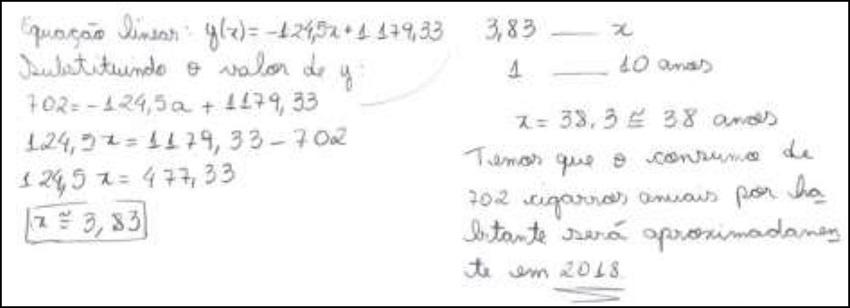 Equação linear: y(x) = -124,5x + 1 179,33
Substituindo o valor de y:
702 = -124,5x + 1179,33
124,5x = 1179,33 - 702
124,5 x = 477,33
x ≅ 3,83
3,83 ___ x
1 ___ 10 anos
x = 38,3 ≅ 38 anos
Temos que o consumo de
702 cigarros anuais por ha
bitante será aproximadamen
te em 2018